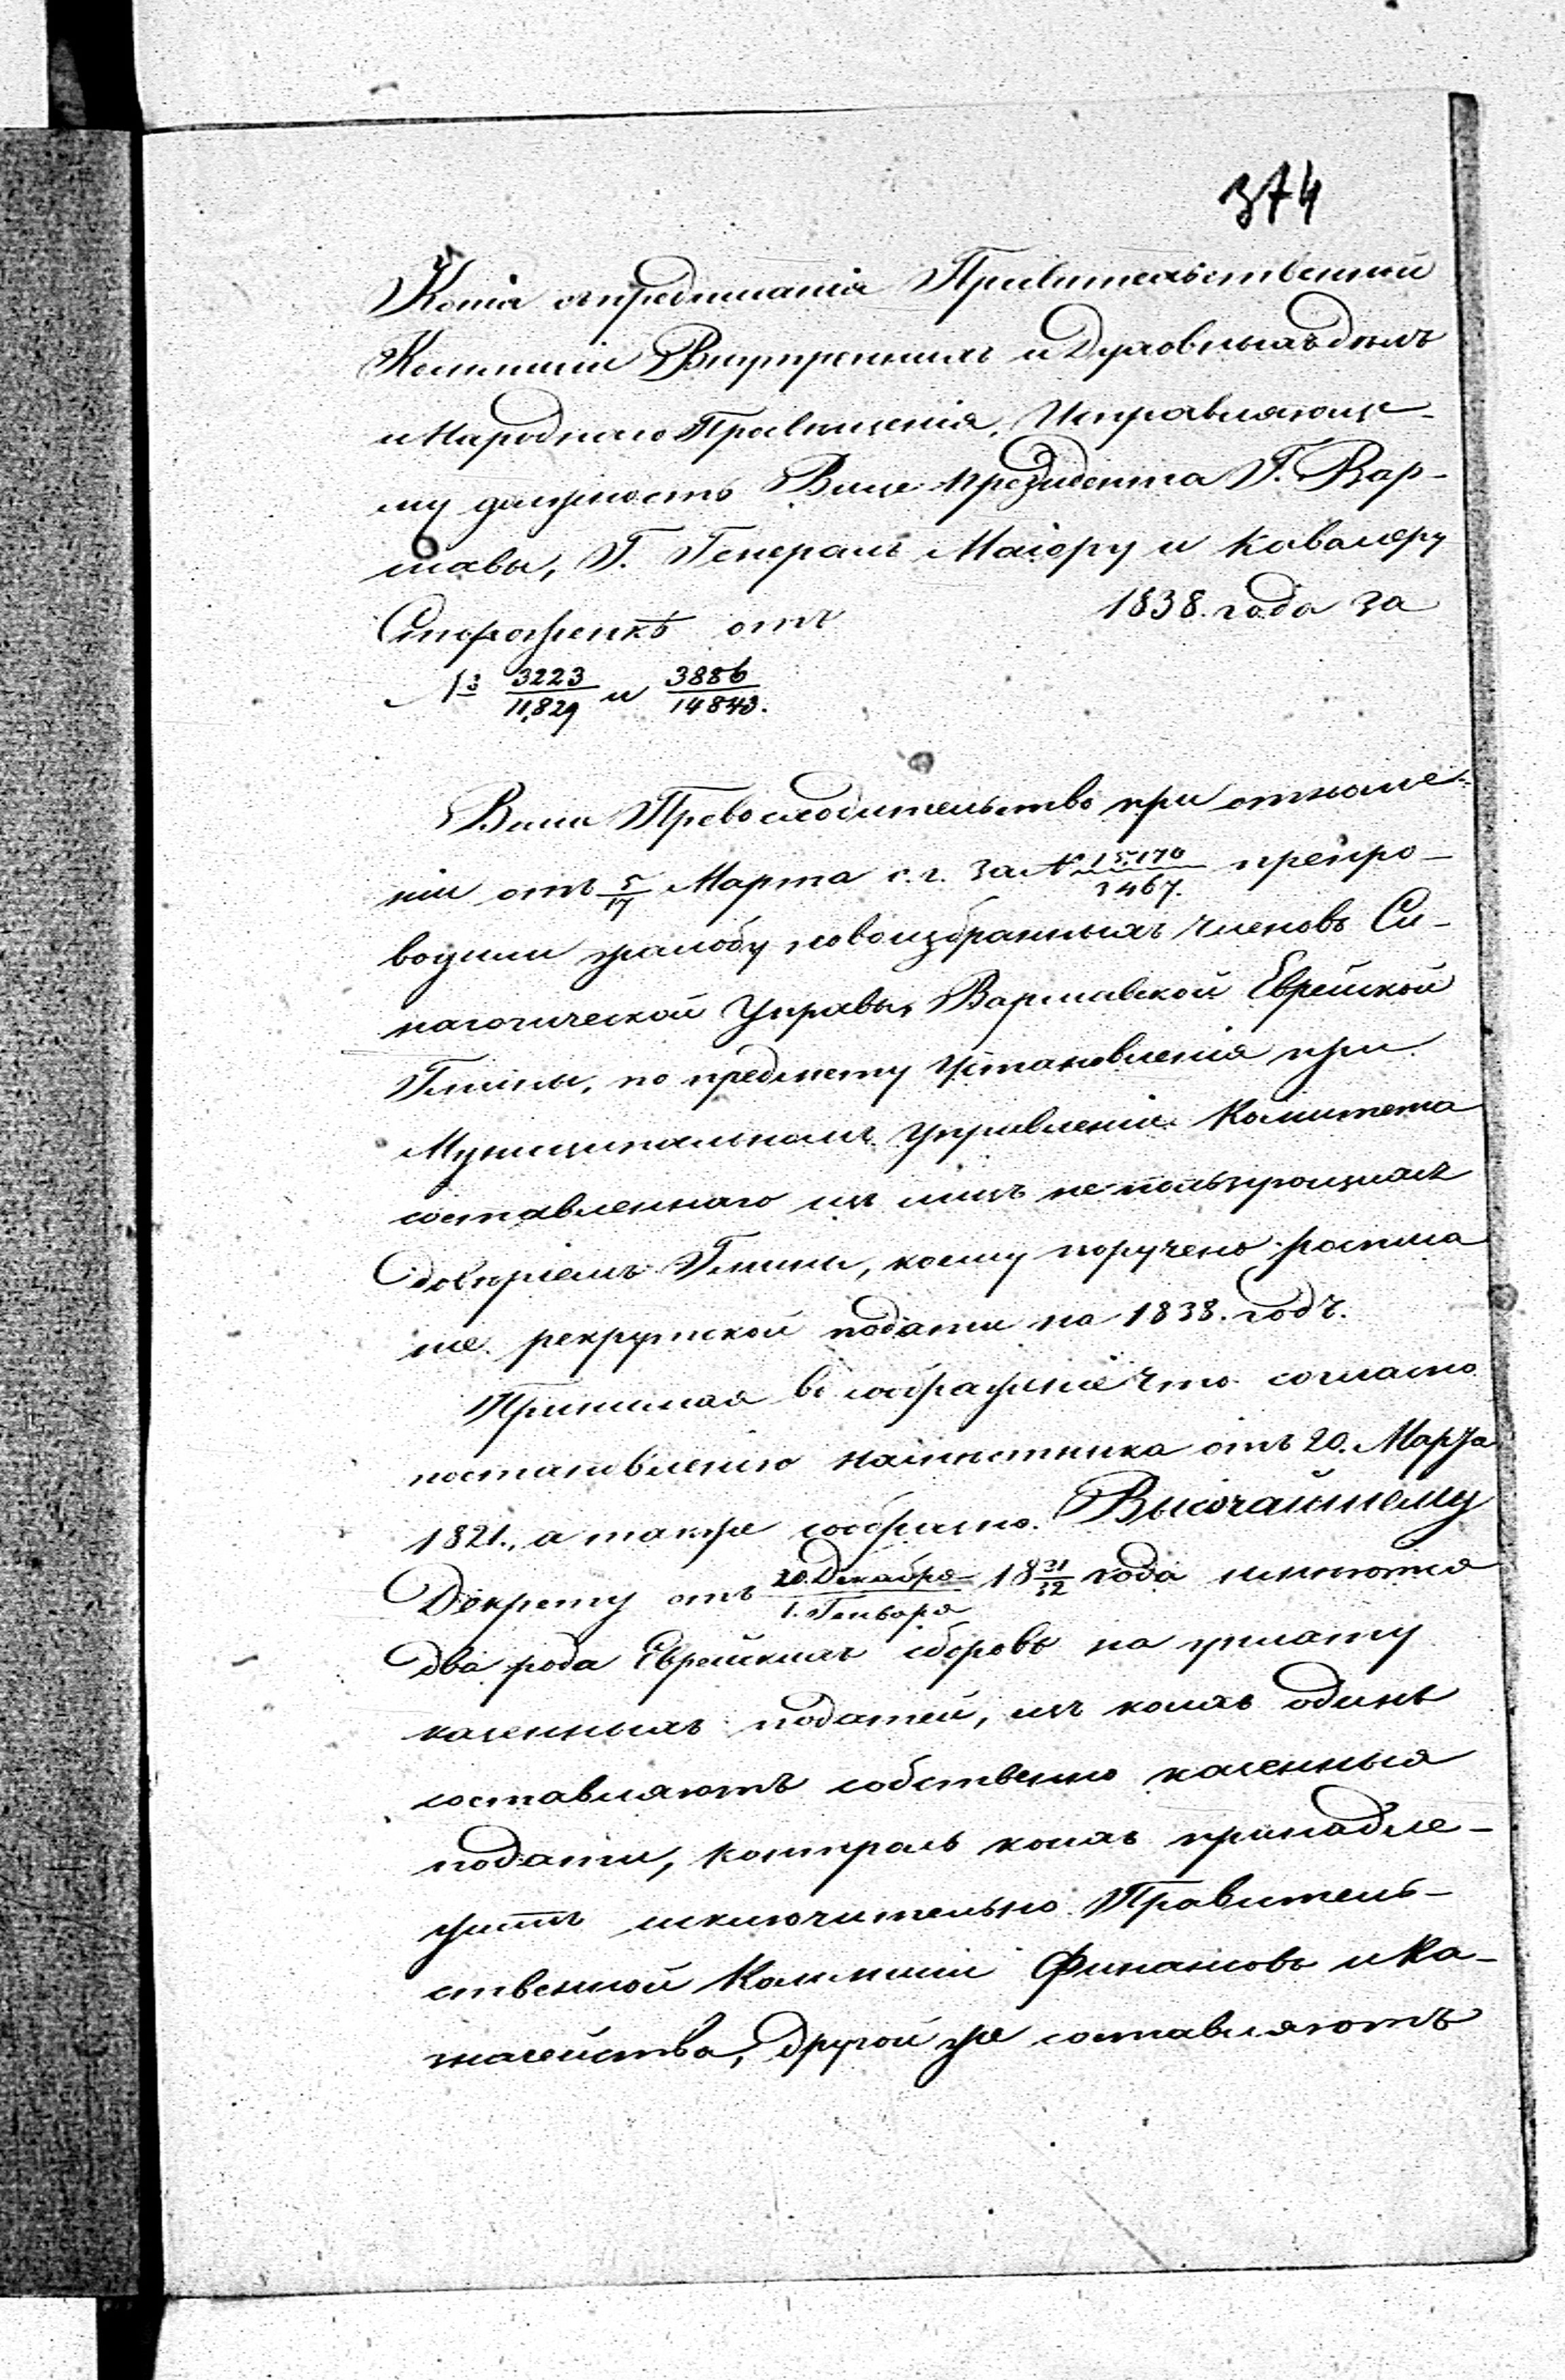 374
Копія съ предписанія Правительственной
Коммисіи Внутреннихъ и Духовныхъ дѣлъ
и Народнаго Просвѣщенія, Исправляюще-
му должность Вице Президента Г. Вар-
шавы, Г. Генералъ Маіору и Кавалеру
Стороженкѣ отъ 1838. года за
№ 3223/11,829 и 3886/14843.
Ваше Превосходительство при отноше-
ніи отъ 5/17 Марта с. г. за № 15,170/3467. препро-
водили жалобу новоизбранныхъ членовъ Си-
нагогической Управы, Варшавской Еврейской
Гмины, по предмету установленія при
Муниципальномъ Управленіи Комитета
составленнаго изъ лицъ не пользующихся
довѣріемъ Гмины, коему поручено роспись
рекрутской подати на 1838. годъ.
Принимая въ соображеніе что согласно
постановленію Намѣстника отъ 20. Марта
1821., а также сообразно Высочайшему
Декрету отъ 20. Декабря/1. Генваря 18 31/32 года имѣются
два рода Еврейскихъ сборовъ на уплату
казенныхъ податей, изъ коихъ одинъ
составляютъ собственно казенныя
подати, контроль коихъ принадле-
житъ исключительно Правитель-
ственной Коммисіи Финансовъ и Ка-
значейства, другой же составляютъ